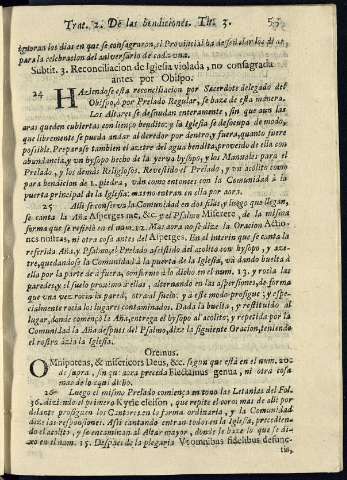 Trat. 2. De las bendiciones. Tit. 3. 55
ignoran los dias en que se consagraron, el Provincial ha de señalar los dias,
para la celebracion del aniversario de cada una.
Subtit. 3. Reconciliacion de Iglesia violada, no consagrada
antes por Obispo.
24 HAziendose esta reconciliacion por Sacerdote delegado del
Obispo, ò por Prelado Regular, se haze de esta manera.
Los Altares se desnudan enteramente, sin que aun las
aras queden cubiertas con lienço bendito; y la Iglesia se desocupa de modo,
que libremente se pueda andar al derredor por dentro, y fuera, quanto fuere
possible. Preparase tambien el acetre del agua bendita, proveido de ella con
abundancia, y un hysopo hecho de la yerva hysopo, y los Manuales para el
Prelado, y los demás Religiosos. Revestido el Prelado, y un acolito como
para bendicion de 1. piedra, vàn como entonces con la Comunidad à la
puerta principal de la Iglesia: mas no entran en ella por aora.
25 Alli se conserva la Comunidad en dos filas, y luego que llegan,
se canta la Aña Asperges me, &c. y el Psalmo Miserere, de la misma
forma que se refirió en el num. 12. Mas aora no se dize la Oracion Actio-
nes nostras, ni otra cosa antes del Asperges. En el interin que se canta la
referida Aña, y Psalmo, el Prelado assistido del acolito con hysopo, y aze-
tre, quedandose la Comunidad à la puerta de la Iglesia, và dando buelta à
ella por la parte de à fuera, conforme à lo dicho en el num. 13. y rocia las
paredes, y el suelo proximo à ellas, alternando en las aspersiones, de forma
que una vez rocia la pared, otra al suelo: y à este modo prosigue; y espe-
cialmente rocia los lugares contaminados. Dada la buelta, y restituido al
lugar, donde començò la Aña, entrega el hysopo al acolito; y repetida por la
Comunidad la Aña despues del Psalmo, dize la siguiente Oracion, teniendo
el rostro àzia la Iglesia.
Oremus.
OMnipotens, & misericors Deus, &c. segun que està en el num. 202
de fuera, sin que aora preceda Flectamus genua, ni otra cosa
mas de lo aqui dicho.
26 Luego el mismo Prelado comiença en tono las Letanias del Fol.
36. diziendo el primero Kyrie eleison, que repite el coro: mas de alli por
delante prosiguen los Cantores en la forma ordinaria, y la Comunidad
dize las responsiones. Assi cantando entran todos en la Iglesia, precedien-
do el acolito, y se encaminan al Altar mayor, donde se haze lo que se di-
xo en el num. 15. Despues de la plegaria Vt omnibus fidelibus defunc-
tis,